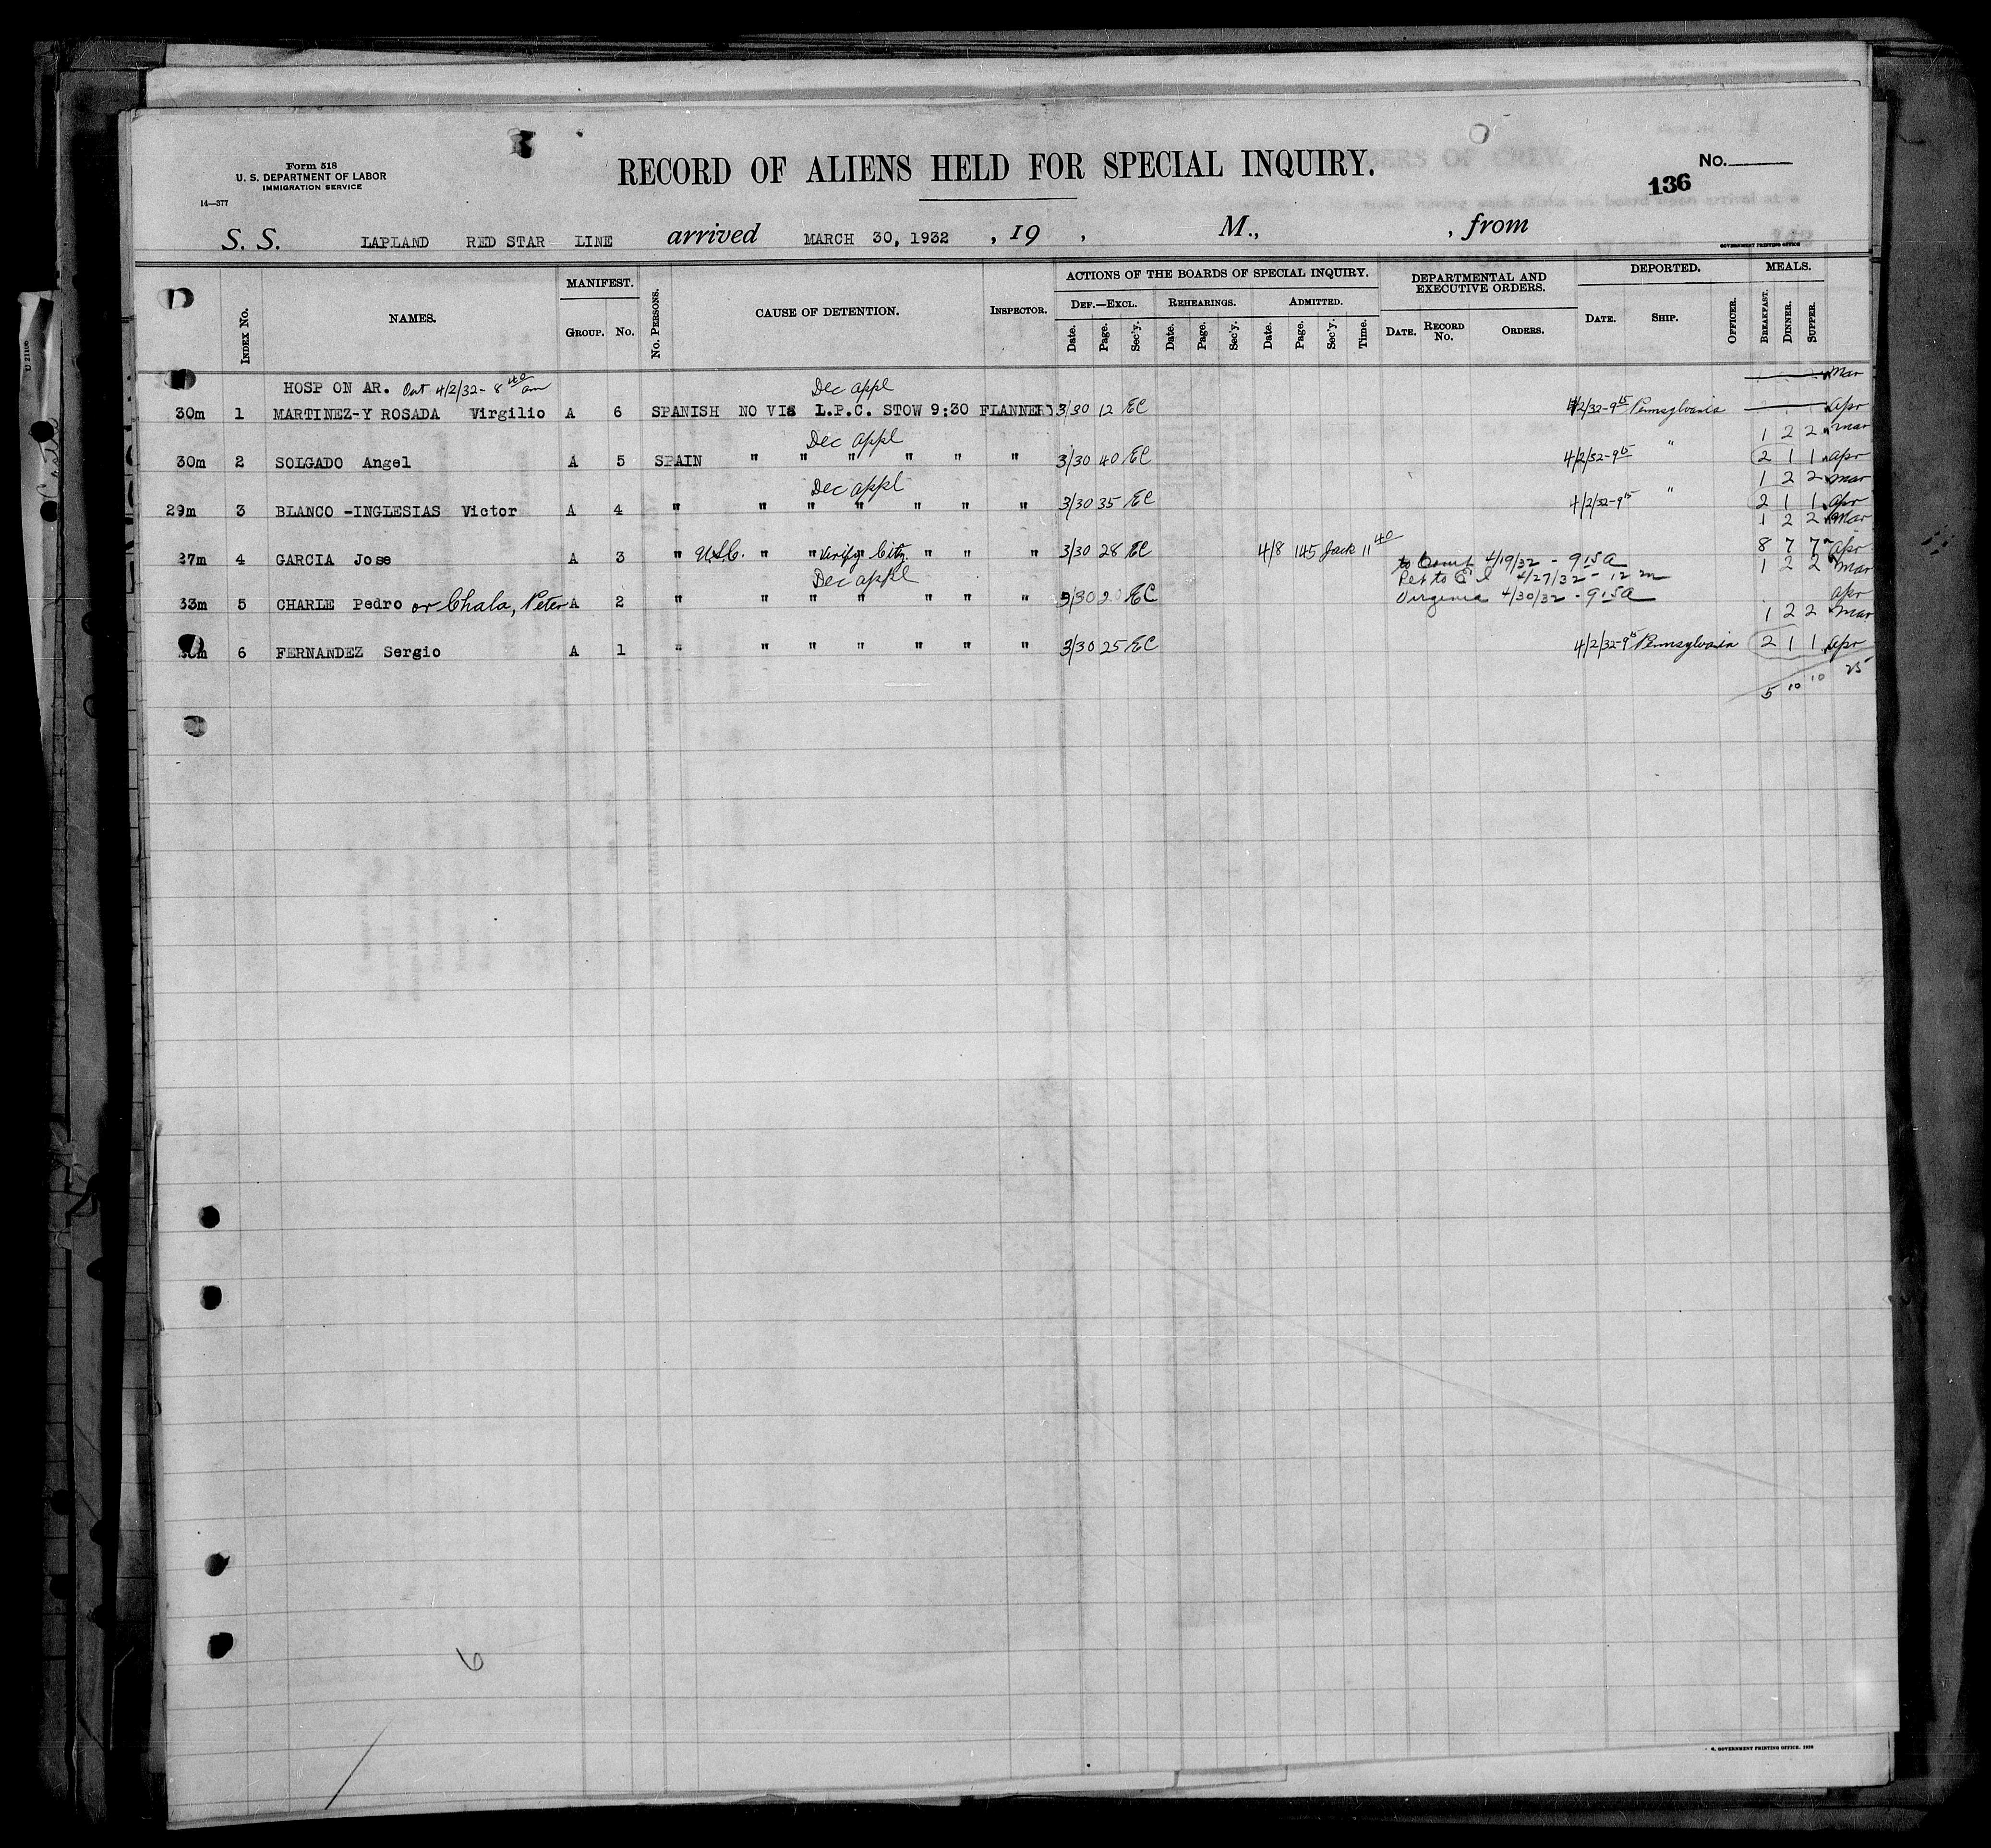 Form 518
U. S. DEPARTMENT OF LABOR
IMMIGRATION SERVICE
14—377
RECORD OF ALIENS HELD FOR SPECIAL INQUIRY.
No.
136
S. S. LAPLAND RED STAR LINE arrived MARCH 30, 1932 , 19 , M., , from
GOVERNMENT PRINTING OFFICE
INDEX No. NAMES. MANIFEST. GROUP. No. No. PERSONS. CAUSE OF DETENTION. INSPECTOR.
ACTIONS OF THE BOARDS OF SPECIAL INQUIRY.
DEF.—EXCL. Date. Page. Sec'y. REHEARINGS. Date. Page. Sec'y. ADMITTED. Date. Page. Sec'y. Time.
DEPARTMENTAL AND EXECUTIVE ORDERS. DATE. RECORD No. ORDERS.
DEPORTED. DATE. SHIP. OFFICER.
MEALS. BREAKFAST. DINNER. SUPPER.
HOSP ON AR. Out 4/2/32- 8 40 am Dec appl Mar
30m 1 MARTINEZ-Y ROSADA Virgilio A 6 SPANISH NO VIS L.P.C. STOW 9:30 FLANNERY 3/30 12 EC 4/2/32-9 15 Pennsylvania Apr
Dec appl 1 2 2 Mar
30m 2 SOLGADO Angel A 5 SPAIN " " " " " " 3/30 40 EC 4/2/32-9 15 " 2 1 1 Apr
Dec appl 1 2 2 Mar
29m 3 BLANCO -INGLESIAS Victor A 4 " " " " " " " 3/30 35 EC 4/2/32-9 15 " 2 1 1 Apr
1 2 2 Mar
27m 4 GARCIA Jose A 3 " U.S.C. " " Verify Citz. " " " 3/30 28 EC 4/8 145 Jack 11 40 8 7 7 Apr
Dec appl to Court 4/19/32 - 9 15 a 1 2 2 Mar
Ret to E I 4/27/32 - 12 m
33m 5 CHARLE Pedro or Chala, Peter A 2 " " " " " " " 3/30 20 EC Virginia 4/30/32 - 9 15 a Apr
1 2 2 Mar
6 FERNANDEZ Sergio A 1 " " " " " " " 3/30 25 EC 4/2/32-9 15 Pennsylvania 2 1 1 Apr
5 10 10 25
6
GOVERNMENT PRINTING OFFICE